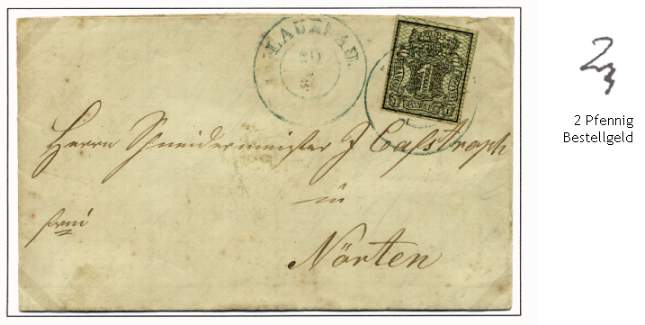 LAUENAU.
1
Herrn Schneidermeister J Caßtroph
in
frei
Nörten
2
2 Pfennig
Bestellgeld